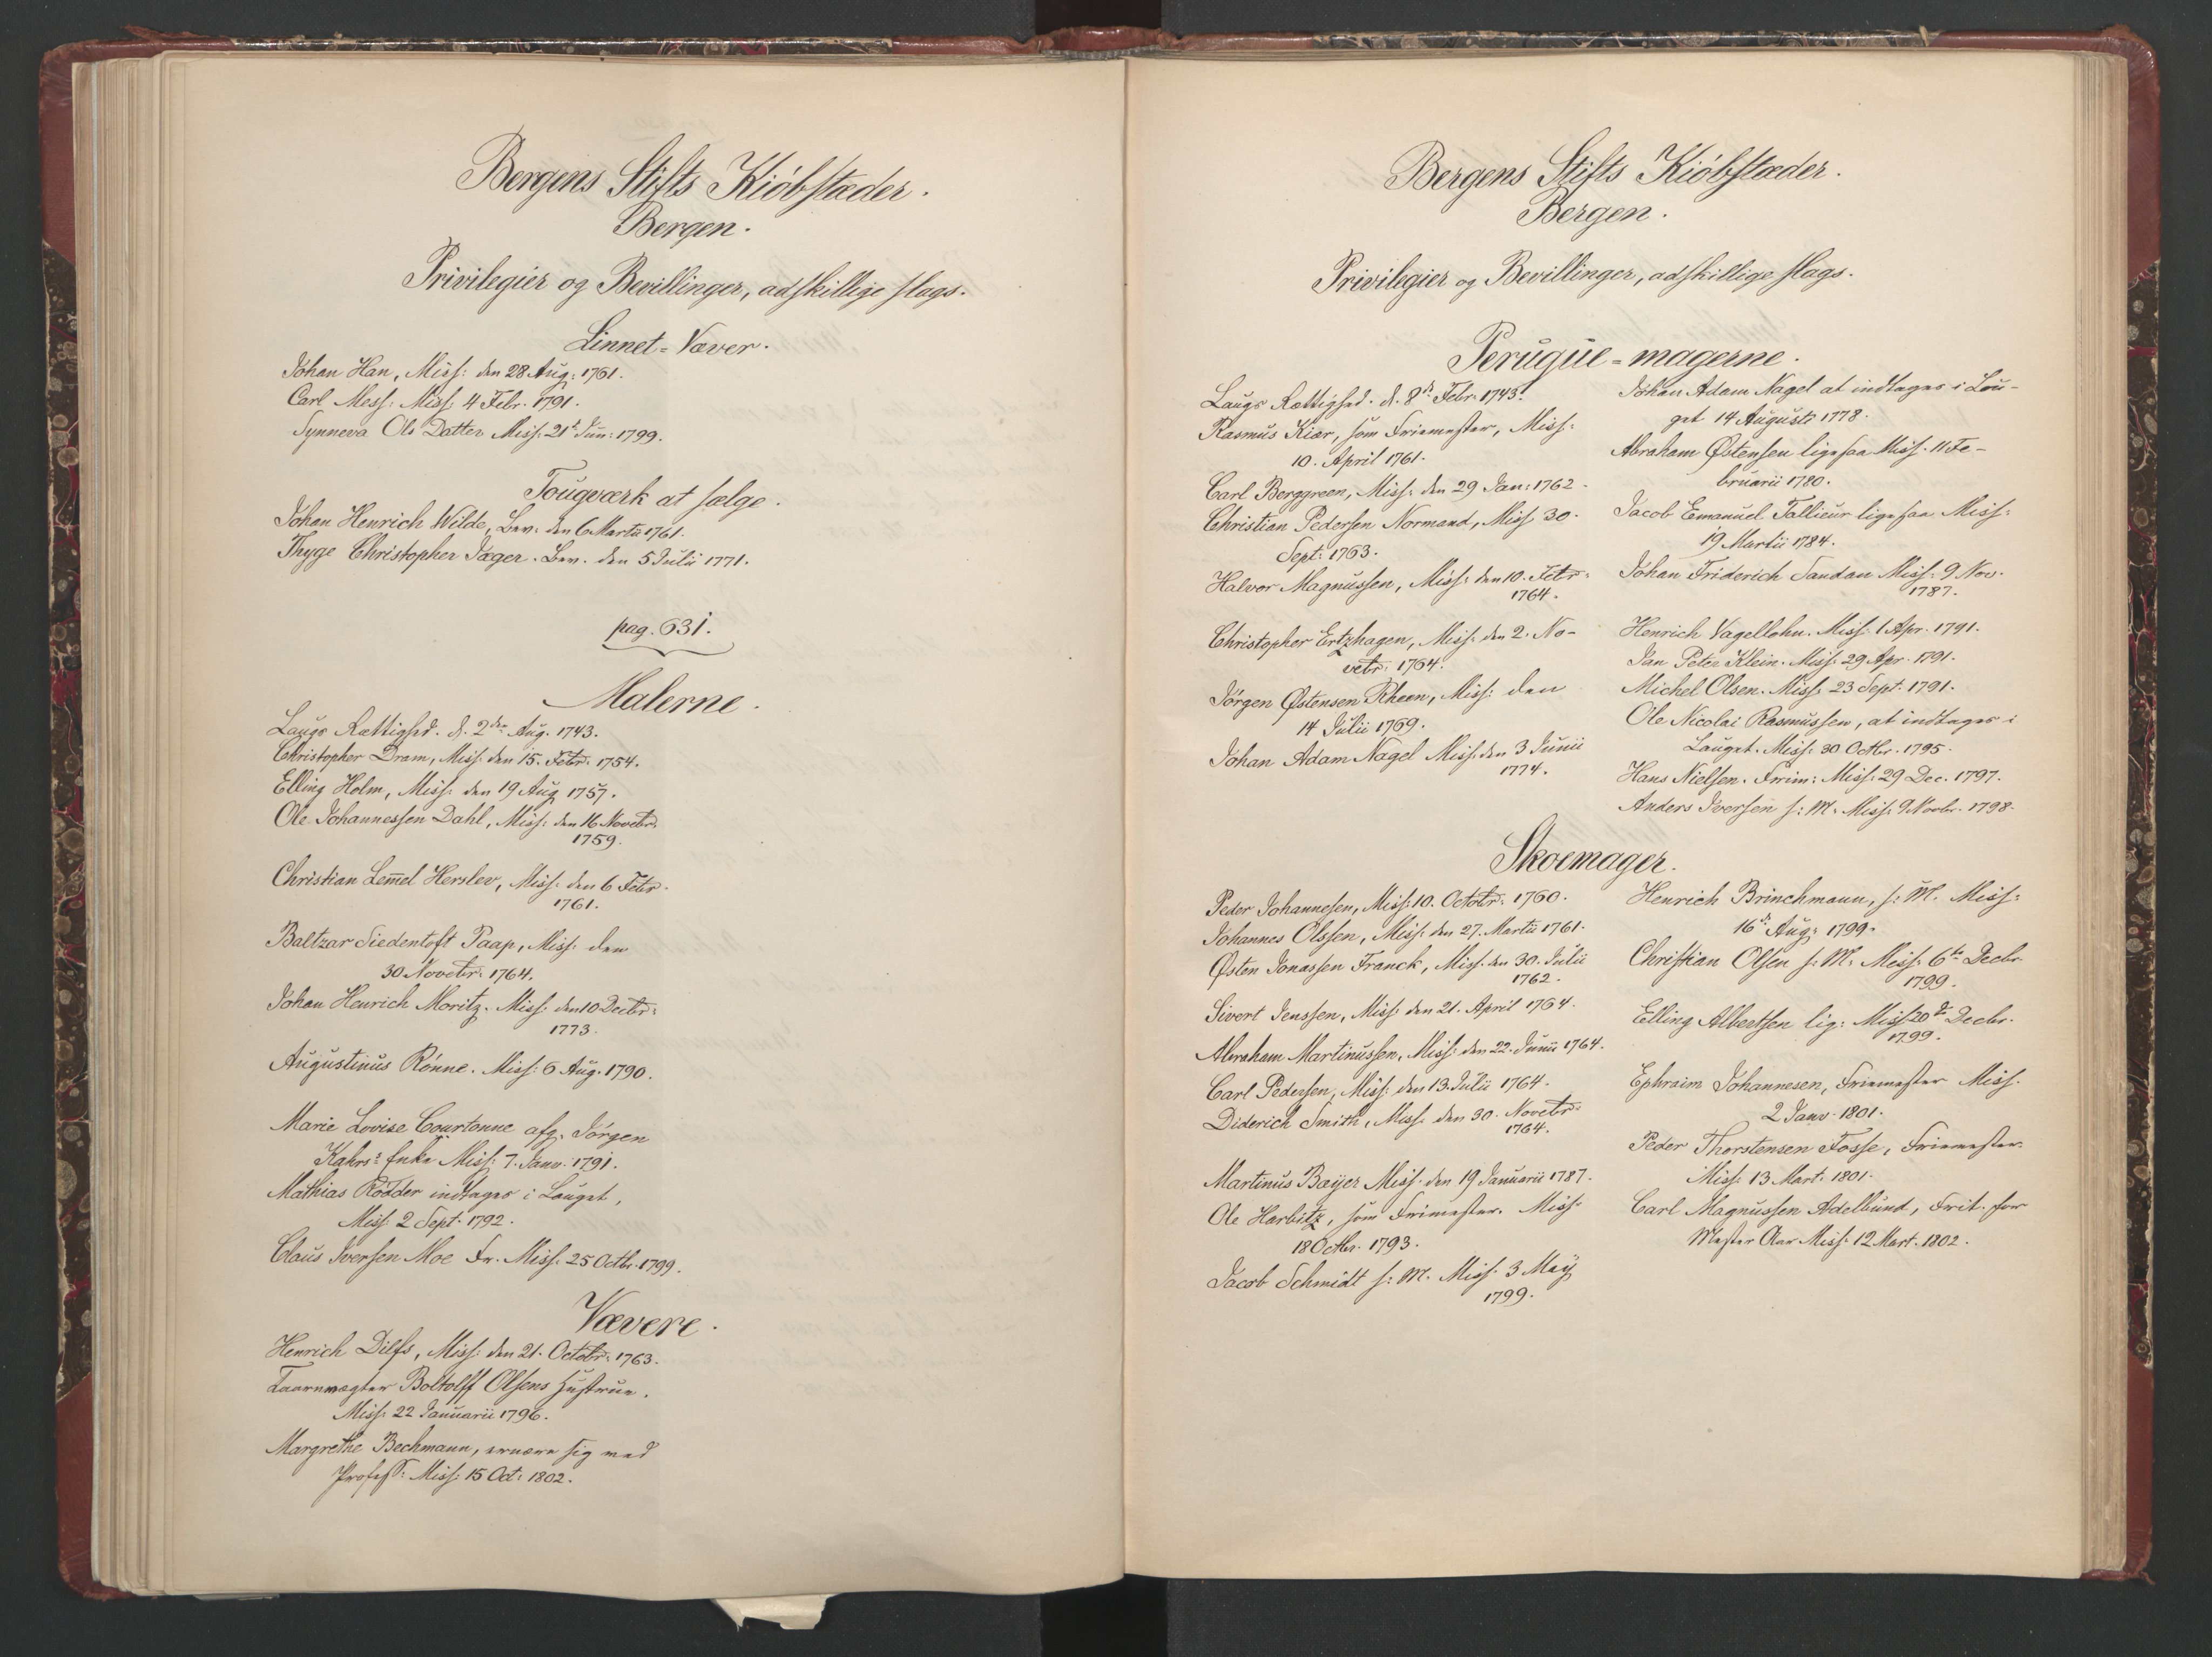 Bergens Stifts Kiöbstæder.
Bergen.
Privilegier og Bevillinger, adskillige slags.
Linnet-Væver.
Johan Han, Miss: den 28 Aug: 1761.
Carl Mess: Miss: 4 Febr. 1791.
Synneva Ols Datter Miss: 21de Jun: 1799.
Tougværk at sælge.
Johan Henrich Wilde, Bev: den 6 Martii 1761.
Thyge Christopher Jæger. Bev. den 5 Julii 1771.
pag. 631.
Malerne.
Laugs Rettighed. d. 2den Aug. 1743.
Christopher Dram, Miss: den 15. Febr: 1754.
Elling Holm, Miss: den 19 Aug 1757.
Ole Johannessen Dahl, Miss: den 16 Novebr:
1759.
Christian Lem̅el Herslev, Miss: den 6 Febr.
1761.
Baltzar Siedentoft Paap, Miss: den
30 Novebr: 1764.
Johan Henrich Moritz. Miss: den 10 Decbr:
1773.
Augustinus Rönne. Miss: 6 Aug. 1790.
Marie Lovise Courtonne afg. Jörgen
Kahrs: Enke Miss: 7. Janv. 1791.
Mathias Rödder indtages i Lauget,
Miss: 2 Sept. 1792.
Claus Iversen Moe Fr. Miss: 25 Octbr. 1799.
Vævere.
Henrich Dilfs, Miss: den 21. Octobr: 1763.
Taarnvægter Boltolff Olsens Hustrue.
Miss: 22 Januarii 1796.
Margrethe Bechmann, ernære sig med
Profess: Miss: 15 Oct: 1802.
Bergens Stifts Kiöbstæder.
Bergen.
Privilegier og Bevillinger, adskillige slags.
Peruque-magerne.
Laugs Rettighed. d. 8de Febr. 1743.
Rasmus Kiær, som Friemester, Miss:
10. April 1761.
Carl Berggreen, Miss: den 29 Jan: 1762.
Christian Pedersen Normand, Miss: 30.
Sept: 1763.
Halvor Magnussen, Miss: den 10. Febr:
1764.
Christopher Ertzhagen, Miss: den 2. No-
vebr: 1764.
Jörgen Østensen Rheen, Miss: den
14 Julii 1769.
Johan Adam Nagel Miss: den 3 Junii
1774.
Johan Adam Nagel at indtages i Lau-
get 14 Augusti 1778.
Abraham Østensen ligesaa Miss. 11 Fe-
bruarii 1780.
Jacob Emanuel Tallieur ligesaa Miss:
19 Martii 1784.
Johan Friderich Sandau Miss: 9 Nov.
1787.
Henrich Vagellohn. Miss: 1 Apr. 1791.
Jan Peter Klein. Miss: 29 Apr. 1791.
Michel Olsen. Miss: 23 Sept. 1791.
Ole Nicolai Rasmussen, at indtages i
Lauget. Miss: 30 Octbr. 1795.
Hans Nielsen. Frim: Miss: 29 Dec. 1797.
Anders Iversen f: M: Miss: 9 Novbr. 1798.
Skoemager.
Peder Johannesen, Miss: 10. Octobr: 1760.
Johannes Olssen, Miss: den 27. Martii 1761.
Østen Jonassen Franck, Miss: den 30. Julii
1762.
Sivert Jenssen, Miss: den 21. April 1764.
Abraham Martinussen, Miss: den 22. Junii 1764.
Carl Pedersen, Miss: den 13. Julii 1764.
Diderich Smith, Miss: den 30. Novebr:
1764.
Martinus Bæyer Miss: den 19 Januarii 1787.
Ole Harbitz, som Frimester. Miss:
18 Octbr. 1793.
Jacob Schmidt f: M. Miss: 3 Maÿ
1799.
Henrich Brinchmann, f: M. Miss:
16de Aug: 1799.
Christian Olsen f: M: Miss: 6te Decbr.
1799.
Elling Albertsen lig: Miss 20de Decbr.
1799.
Ephraim Johannesen, Friemester Miss.
2 Janv. 1801.
Peder Thorstensen Fosse, Friemester.
Miss: 13 Mart. 1801.
Carl Magnussen Adelbund, Frit. for
Mester Aar Miss: 12 Mart. 1802.